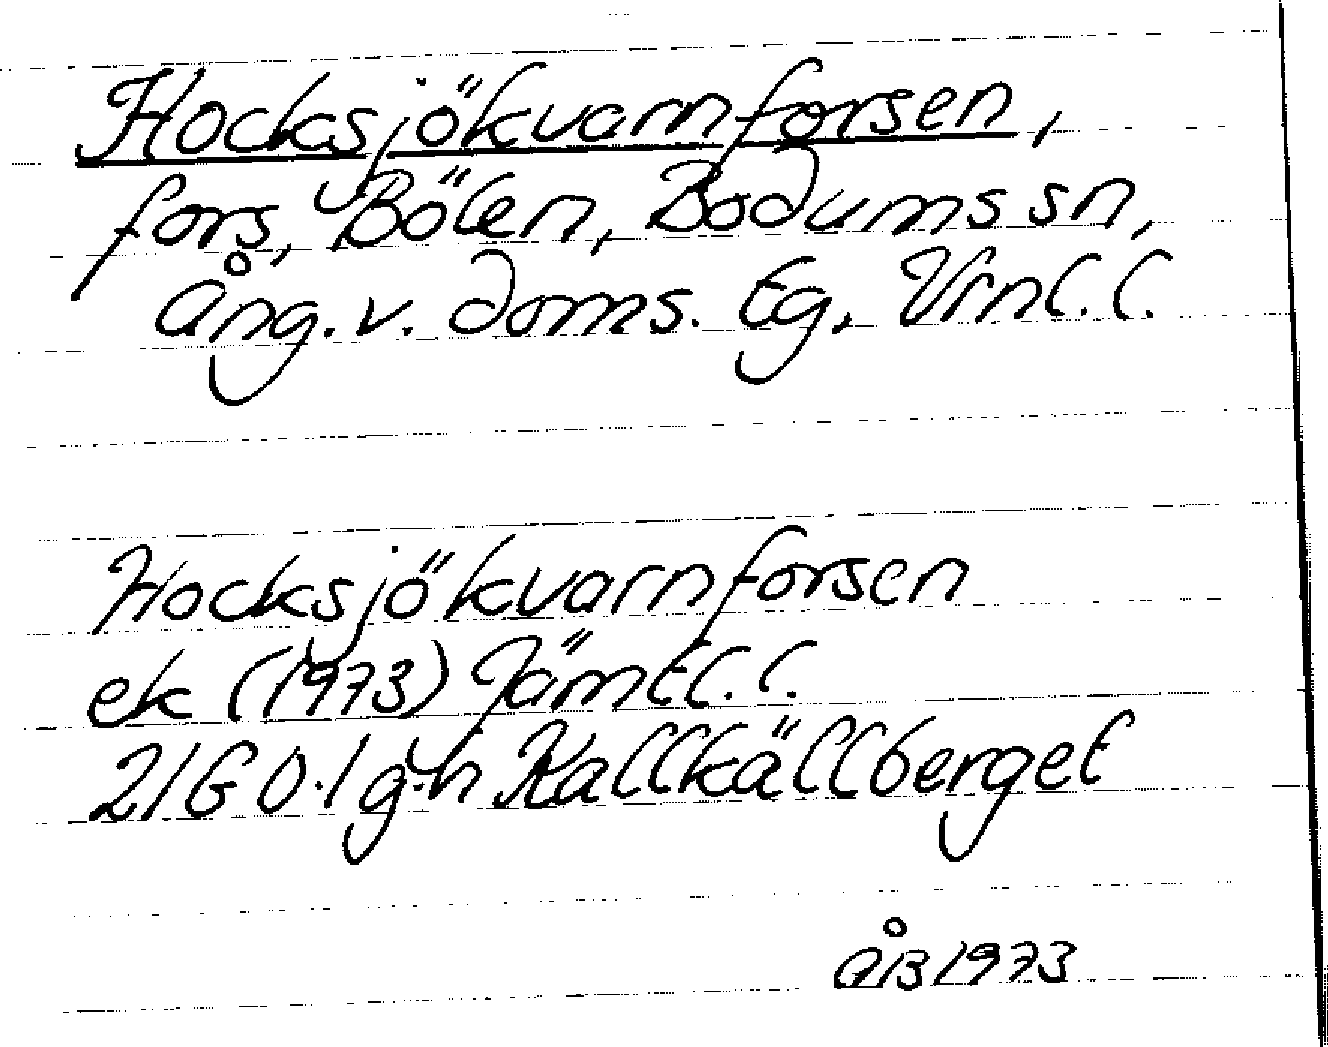 Hocksjökvarnforsen,
fors, Bölen, Bodums sn,
Ång. v. doms. tg, Vrnl. l.
Hocksjökvarnforsen
ek (1973) Jämtl. l.
21G 0·1 g-h Kallkällberget
ÅB 1973